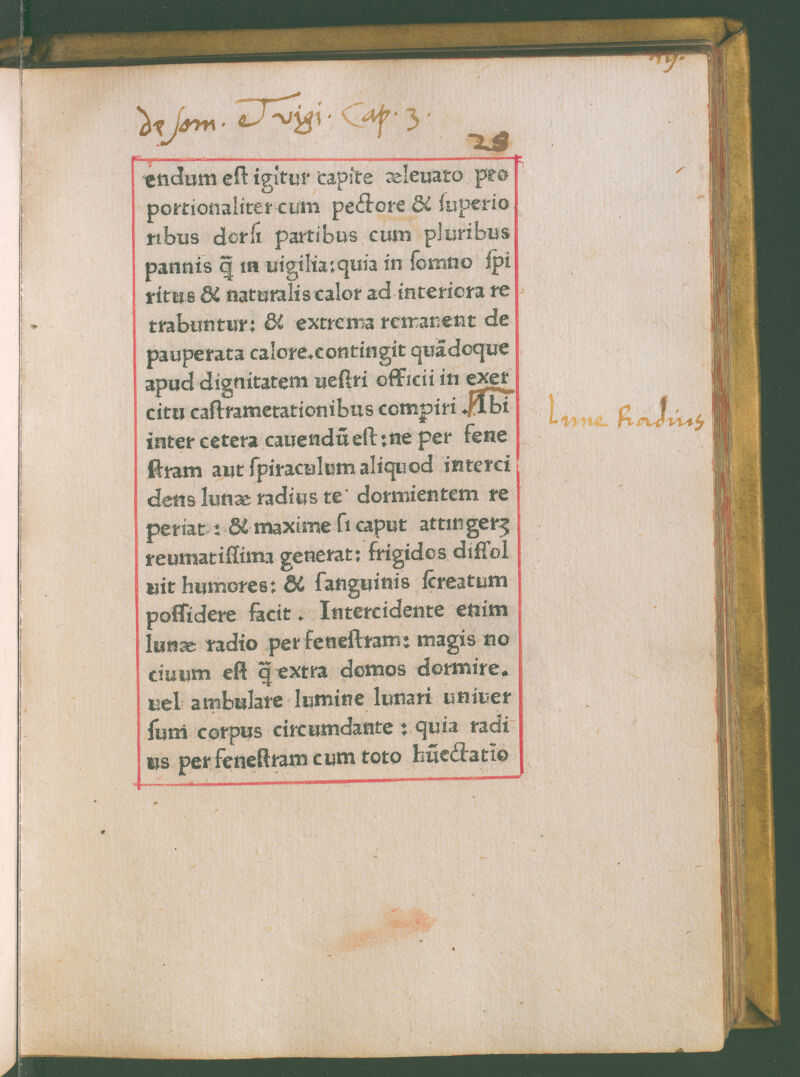 de som. et vigi. Cap. 3.
28
endum eſt igitur capite æleuato pro
portionaliter cum pectore & ſuperio
ribus dorſi partibus cum pluribus
pannis q̃ in uigilia:quia in ſomno ſpi
ritus & naturalis calor ad interiora re
trabuntur: & extrema remanent de
pauperata calore.contingit quãdoque
apud dignitatem ueſtri officii in exer
citu caſtrametationibus compiri. Ibi
inter cetera cauendũ eſt:ne per fene
ſtram aut ſpiraculum aliquod interci
dens lunæ radius te dormientem re
periat: & maxime ſi caput attingerꝫ
reumatiſſima generat: frigidos diſſol
uit humores: & ſanguinis ſcreatum
poſſidere facit. Intercidente enim
lunæ radio per feneſtram: magis no
ciuum eſt q̃ extra domos dormire.
uel ambulare lumine lunari uniuer
ſum corpus circumdante: quia radi
us per feneſtram cum toto hũectatio
Lune Radius